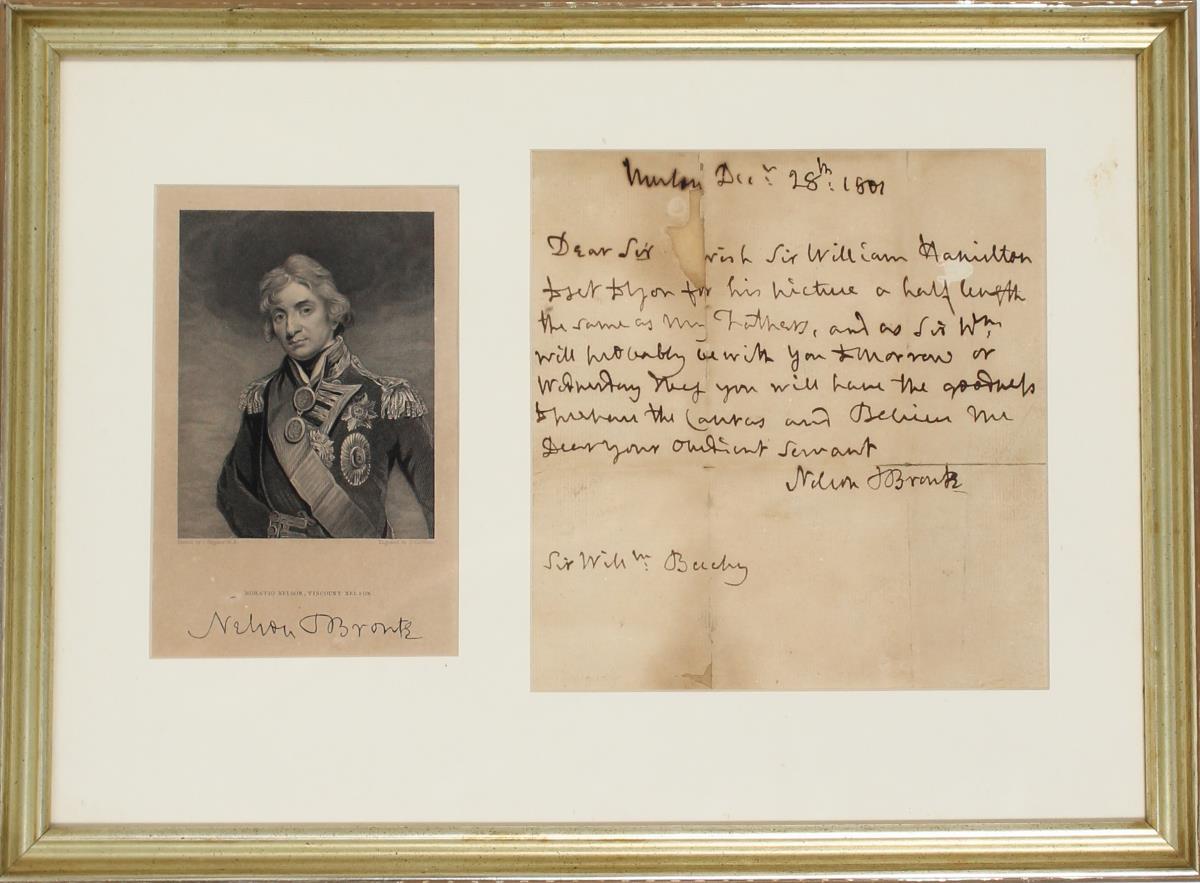 Painted by J. Hoppner R.A.
Engraved by
HORATIO NELSON, VISCOUNT NELSON
Nelson & Bronte
Merton Decr. 28th: 1801
Dear Sir wish Sir William Hamilton
to set to you for his picture a half length
the same as My Fathers, and as Sir Wm.
will probably be with you tomorrow or
Wednesday they you will have the goodness
to prepare the Canvas and Believe Me
Dear your obedient Servant
Nelson & Bronte
Sir Willm. Beechy